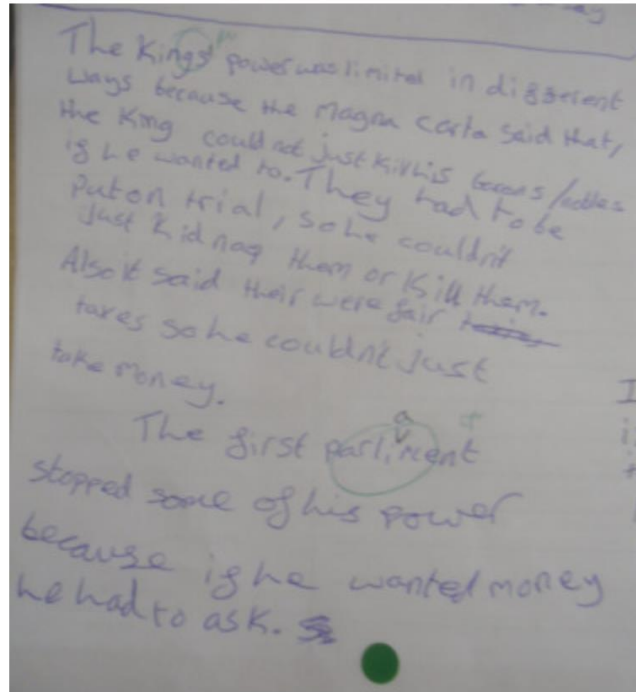 The Kings power was limited in different
ways because the Magna Carta said that,
the King could not just kill his barons/nobles
if he wanted to. They had to be
put on trial, so he couldn't
just kidnap them or kill them.
Also it said their were fair
taxes so he couldn't just
take money.
The first parliament
stopped some of his power
because if he wanted money
he had to ask.